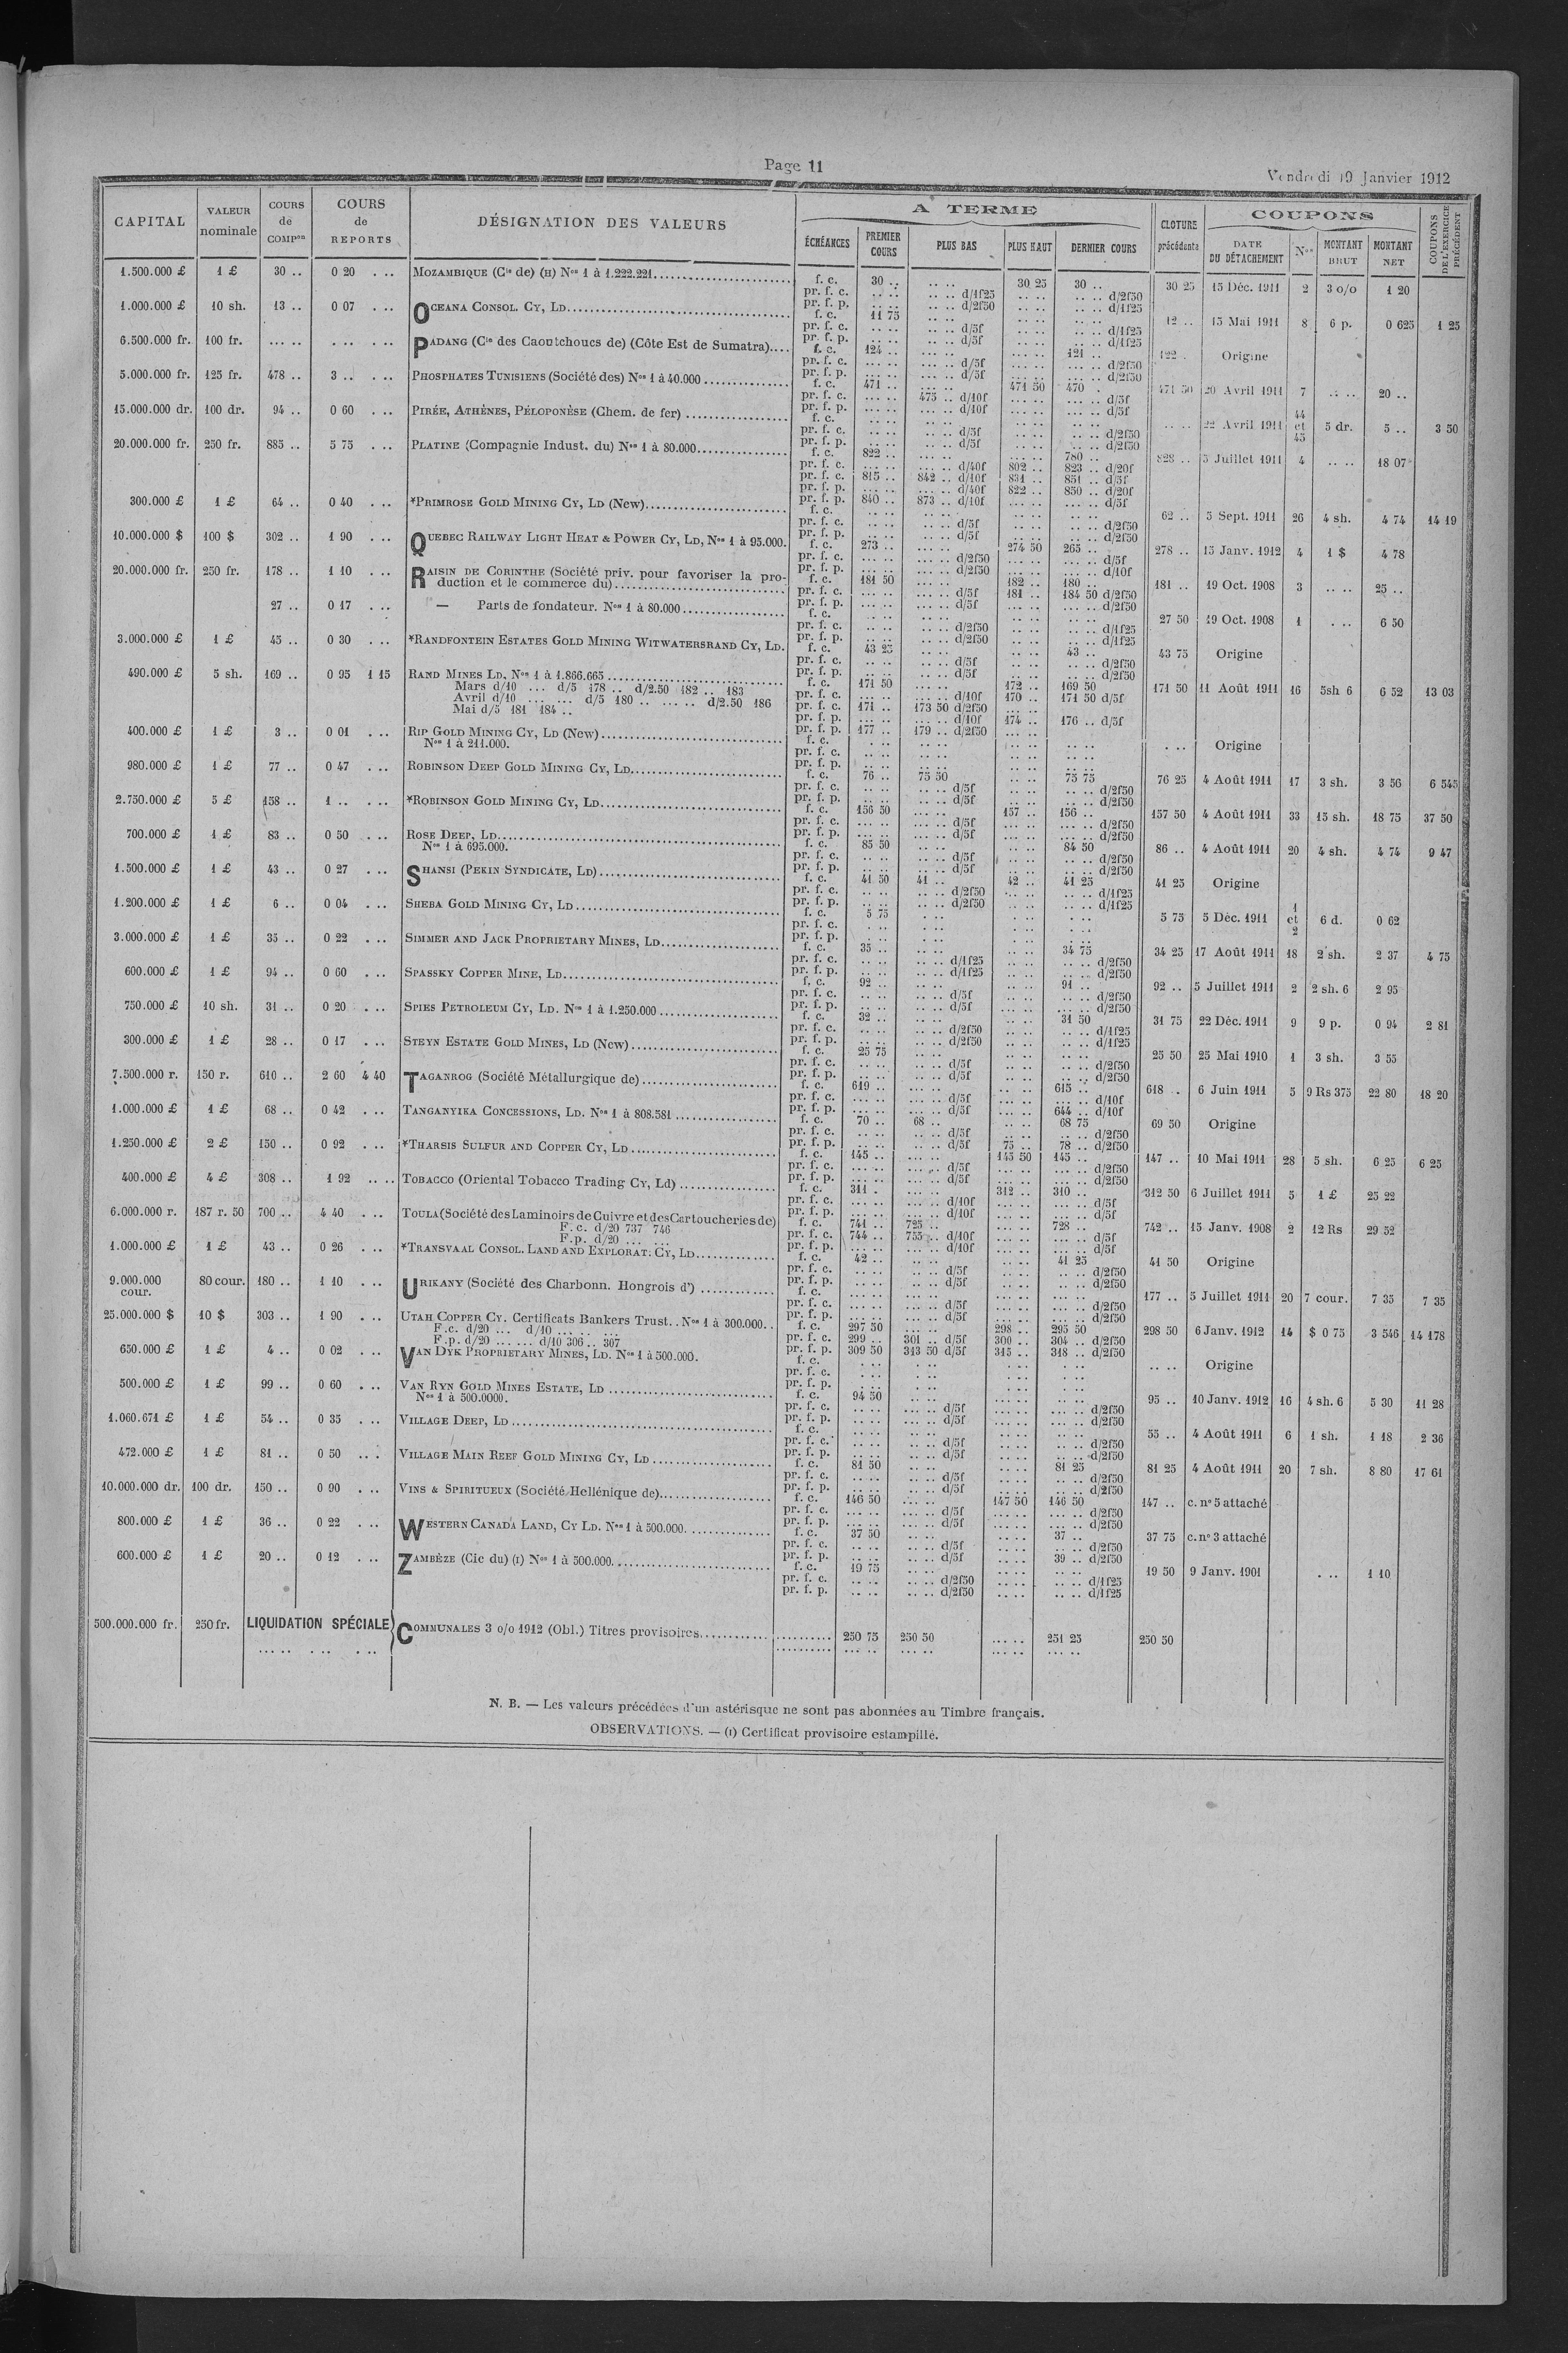 Page 11
Vendredi 19 Janvier 1912
CAPITAL VALEUR nominale COURS de COMPon COURS de REPORTS DÉSIGNATION DES VALEURS A TERME CLOTURE précédente COUPONS COUPONS DE L'EXERCICE PRÉCÉDENT
ÉCHÉANCES PREMIER COURS PLUS BAS PLUS HAUT DERNIER COURS DATE DU DÉTACHEMENT Nos MONTANT BRUT MONTANT NET
1.500.000 £ 1 £ 30 .. 0 20 . .. MOZAMBIQUE (Cie de) (H) Nos 1 à 1.222.221 f. c. 30 .. .. .. 30 25 30 .. 30 25 15 Déc. 1911 2 3 o/o 1 20
pr. f. c. .. .. .. .. d/1f25 .. .. .. .. d/2f50
pr. f. p. .. .. .. .. d/2f50 .. .. .. .. d/1f25
1.000.000 £ 10 sh. 13 .. 0 07 . .. OCEANA CONSOL. CY, LD f. c. 11 75 .. .. .. .. .. .. 12 .. 15 Mai 1911 8 6 p. 0 625 1 25
pr. f. c. .. .. .. .. d/5f .. .. .. .. d/1f25
pr. f. p. .. .. .. .. d/5f .. .. .. .. d/1f25
6.500.000 fr. 100 fr. ... .. .. .. . .. PADANG (Cie des Caoutchoucs de) (Côte Est de Sumatra) f. c. 124 .. ... .. ... .. 121 .. 122 . Origine
pr. f. c. ... .. ... .. d/5f ... .. ... .. d/2f50
pr. f. p. ... .. ... .. d/5f ... .. ... .. d/2f50
5.000.000 fr. 125 fr. 478 .. 3 .. . .. PHOSPHATES TUNISIENS (Société des) Nos 1 à 40.000 f. c. 471 .. ... .. 471 50 470 . 471 50 20 Avril 1911 7 .. .. 20 ..
pr. f. c. ... .. 475 .. d/10f ... .. ... .. d/5f
pr. f. p. ... .. ... .. d/10f ... .. ... .. d/5f
15.000.000 dr. 100 dr. 94 .. 0 60 . .. PIRÉE, ATHÈNES, PÉLOPONÈSE (Chem. de fer) f. c. .. .. .. .. .. .. .. .. .. .. 22 Avril 1911 44 et 45 5 dr. 5 .. 3 50
pr. f. c. .. .. .. .. d/5f .. .. .. .. d/2f50
pr. f. p. .. .. .. .. d/5f .. .. .. .. d/2f50
20.000.000 fr. 250 fr. 885 .. 5 75 . .. PLATINE (Compagnie Indust. du) Nos 1 à 80.000 f. c. 822 .. ... .. ... .. 780 .. 828 .. 5 Juillet 1911 4 .. .. 18 07
pr. f. c. ... .. ... .. d/40f 802 .. 823 .. d/20f
pr. f. c. 815 .. 842 .. d/10f 831 .. 851 .. d/5f
pr. f. p. ... .. ... .. d/40f 822 .. 850 .. d/20f
pr. f. p. 840 .. 873 .. d/10f ... .. ... .. d/5f
300.000 £ 1 £ 64 .. 0 40 . .. *PRIMROSE GOLD MINING CY, LD (New) f. c. .. .. .. .. .. .. .. .. 62 .. 5 Sept. 1911 26 4 sh. 4 74 14 19
pr. f. c. .. .. .. .. d/5f .. .. .. .. d/2f50
pr. f. p. .. .. .. .. d/5f .. .. .. .. d/2f50
10.000.000 $ 100 $ 302 .. 1 90 . .. QUEBEC RAILWAY LIGHT HEAT & POWER CY, LD, Nos 1 à 95.000. f. c. 273 .. ... .. 274 50 265 .. 278 .. 15 Janv. 1912 4 1 $ 4 78
pr. f. c. ... .. ... .. d/2f50 ... .. ... .. d/5f
pr. f. p. ... .. ... .. d/2f50 ... .. ... .. d/10f
20.000.000 fr. 250 fr. 178 .. 1 10 . .. RAISIN DE CORINTHE (Société priv. pour favoriser la pro-
duction et le commerce du) f. c. 181 50 ... .. 182 .. 180 .. 181 .. 19 Oct. 1908 3 .. .. 25 ..
pr. f. c. ... .. ... .. d/5f 181 .. 184 50 d/2f50
pr. f. p. ... .. ... .. d/5f ... .. ... .. d/2f50
27 .. 0 17 . .. — Parts de fondateur. Nos 1 à 80.000 f. c. .. .. .. .. .. .. .. .. 27 50 19 Oct. 1908 1 . .. 6 50
pr. f. c. .. .. .. .. d/2f50 .. .. .. .. d/1f25
pr. f. p. .. .. .. .. d/2f50 .. .. .. .. d/1f25
3.000.000 £ 1 £ 45 .. 0 30 . .. *RANDFONTEIN ESTATES GOLD MINING WITWATERSRAND CY, LD. f. c. 43 25 .. .. .. .. 43 .. 43 75 Origine
pr. f. c. .. .. .. .. d/5f .. .. .. .. d/2f50
pr. f. p. .. .. .. .. d/5f .. .. .. .. d/2f50
490.000 £ 5 sh. 169 .. 0 95 1 15 RAND MINES LD. Nos 1 à 1.866.665 f. c. 171 50 ... .. 172 .. 169 50 171 50 11 Août 1911 16 5sh 6 6 52 13 03
Mars d/10 ... d/5 178 .. d/2.50 182 .. 183 pr. f. c. ... .. ... .. d/10f 170 .. 171 50 d/5f
Avril d/10 ... ... d/5 180 .. ... .. d/2.50 186 pr. f. c. 171 .. 173 50 d/2f50 ... ..
Mai d/5 181 184 .. pr. f. p. ... .. ... .. d/10f 174 .. 176 .. d/5f
pr. f. p. 177 .. 179 .. d/2f50 ... ..
400.000 £ 1 £ 3 .. 0 01 . .. RIP GOLD MINING CY, LD (New) f. c. . .. .. .. .. .. .. .. . .. Origine
Nos 1 à 211.000. pr. f. c. .. .. .. .. .. .. .. ..
pr. f. p. .. .. .. .. .. .. .. ..
980.000 £ 1 £ 77 .. 0 47 . .. ROBINSON DEEP GOLD MINING CY, LD f. c. 76 .. 75 50 .. .. 75 75 76 25 4 Août 1911 17 3 sh. 3 56 6 545
pr. f. c. .. .. .. .. d/5f .. .. .. .. d/2f50
pr. f. p. .. .. .. .. d/5f .. .. .. .. d/2f50
2.750.000 £ 5 £ 158 .. 1 .. . .. *ROBINSON GOLD MINING CY, LD f. c. 156 50 ... .. 157 .. 156 .. 157 50 4 Août 1911 33 15 sh. 18 75 37 50
pr. f. c. ... .. ... .. d/5f ... .. ... .. d/2f50
pr. f. p. ... .. ... .. d/5f ... .. ... .. d/2f50
700.000 £ 1 £ 83 .. 0 50 . .. ROSE DEEP, LD f. c. 85 50 .. .. .. .. 84 50 86 .. 4 Août 1911 20 4 sh. 4 74 9 47
Nos 1 à 695.000. pr. f. c. .. .. .. .. d/5f .. .. .. .. d/2f50
pr. f. p. .. .. .. .. d/5f .. .. .. .. d/2f50
1.500.000 £ 1 £ 43 .. 0 27 . .. SHANSI (PEKIN SYNDICATE, LD) f. c. 41 50 41 .. 42 .. 41 25 41 25 Origine
pr. f. c. .. .. .. .. d/2f50 .. .. .. .. d/1f25
pr. f. p. .. .. .. .. d/2f50 .. .. .. .. d/1f25
1.200.000 £ 1 £ 6 .. 0 04 . .. SHEBA GOLD MINING CY, LD f. c. 5 75 . .. . .. . .. 5 75 5 Déc. 1911 1 et 2 6 d. 0 62
pr. f. c. . .. . .. . .. . ..
pr. f. p. . .. . .. . .. . ..
3.000.000 £ 1 £ 35 .. 0 22 . .. SIMMER AND JACK PROPRIETARY MINES, LD f. c. 35 .. .. .. .. .. 34 75 34 25 17 Août 1911 18 2 sh. 2 37 4 75
pr. f. c. .. .. .. .. d/1f25 .. .. .. .. d/2f50
pr. f. p. .. .. .. .. d/1f25 .. .. .. .. d/2f50
600.000 £ 1 £ 94 .. 0 60 . .. SPASSKY COPPER MINE, LD f. c. 92 .. .. .. .. .. 91 .. 92 .. 5 Juillet 1911 2 2 sh. 6 2 95
pr. f. c. .. .. .. .. d/5f .. .. .. .. d/2f50
pr. f. p. .. .. .. .. d/5f .. .. .. .. d/2f50
750.000 £ 10 sh. 31 .. 0 20 . .. SPIES PETROLEUM CY, LD. Nos 1 à 1.250.000 f. c. 32 .. .. .. .. .. 31 50 31 75 22 Déc. 1911 9 9 p. 0 94 2 81
pr. f. c. .. .. .. .. d/2f50 .. .. .. .. d/1f25
pr. f. p. .. .. .. .. d/2f50 .. .. .. .. d/1f25
300.000 £ 1 £ 28 .. 0 17 . .. STEYN ESTATE GOLD MINES, LD (New) f. c. 25 75 .. .. .. .. .. .. 25 50 25 Mai 1910 1 3 sh. 3 55
pr. f. c. .. .. .. .. d/5f .. .. .. .. d/2f50
pr. f. p. .. .. .. .. d/5f .. .. .. .. d/2f50
7.500.000 r. 150 r. 610 .. 2 60 4 40 TAGANROG (Société Métallurgique de) f. c. 619 .. ... .. ... .. 615 .. 618 .. 6 Juin 1911 5 9 Rs 375 22 80 18 20
pr. f. c. ... .. ... .. d/5f ... .. ... .. d/10f
pr. f. p. ... .. ... .. d/5f ... .. 644 .. d/10f
1.000.000 £ 1 £ 68 .. 0 42 . .. TANGANYIKA CONCESSIONS, LD. Nos 1 à 808.581 f. c. 70 .. 68 .. .. .. 68 75 69 50 Origine
pr. f. c. .. .. .. .. d/5f .. .. .. .. d/2f50
pr. f. p. .. .. .. .. d/5f 75 .. 78 .. d/2f50
1.250.000 £ 2 £ 150 .. 0 92 . .. *THARSIS SULFUR AND COPPER CY, LD f. c. 145 .. ... .. 145 50 145 .. 147 .. 10 Mai 1911 28 5 sh. 6 25 6 25
pr. f. c. ... .. ... .. d/5f ... .. ... .. d/2f50
pr. f. p. ... .. ... .. d/5f ... .. ... .. d/2f50
400.000 £ 4 £ 308 .. 1 92 .. .. TOBACCO (Oriental Tobacco Trading Cy, Ld) f. c. 311 . ... .. 312 .. 310 .. 312 50 6 Juillet 1911 5 1 £ 25 22
pr. f. c. ... .. ... .. d/10f ... .. ... .. d/5f
pr. f. p. ... .. ... .. d/10f ... .. ... .. d/5f
6.000.000 r. 187 r. 50 700 .. 4 40 . .. TOULA (Société des Laminoirs de Cuivre et des Cartoucheries de) f. c. 741 .. 725 .. ... .. 728 .. 742 .. 15 Janv. 1908 2 12 Rs 29 52
F. c. d/20 737 746 pr. f. c. 744 .. 755 .. d/10f ... .. ... .. d/5f
F.p. d/20 ... ... pr. f. p. ... .. ... .. d/10f ... .. ... .. d/5f
1.000.000 £ 1 £ 43 .. 0 26 . .. *TRANSVAAL CONSOL. LAND AND EXPLORAT. CY, LD f. c. 42 .. .. .. .. .. 41 25 41 50 Origine
pr. f. c. .. .. .. .. d/5f .. .. .. .. d/2f50
pr. f. p. .. .. .. .. d/5f .. .. .. .. d/2f50
9.000.000 cour. 80 cour. 180 .. 1 10 . .. URIKANY (Société des Charbonn. Hongrois d') f. c. ... .. ... .. ... .. ... .. 177 .. 5 Juillet 1911 20 7 cour. 7 35 7 35
pr. f. c. ... .. ... .. d/5f ... .. ... .. d/2f50
pr. f. p. ... .. ... .. d/5f ... .. ... .. d/2f50
25.000.000 $ 10 $ 303 .. 1 90 . .. UTAH COPPER CY. Certificats Bankers Trust. . Nos 1 à 300.000. . f. c. 297 50 ... .. 298 .. 295 50 298 50 6 Janv. 1912 14 $ 0 75 3 546 14 178
F.c. d/20 ... d/10 ... .. ... pr. f. c. 299 .. 301 .. d/5f 300 .. 304 .. d/2f50
F.p. d/20 ... .. ... d/10 306 .. 307 pr. f. p. 309 50 313 50 d/5f 315 .. 318 .. d/2f50
650.000 £ 1 £ 4 .. 0 02 . .. VAN DYK PROPRIETARY MINES, LD. Nos 1 à 500.000. f. c. . .. . .. . .. . .. .. .. Origine
pr. f. c. . .. . .. . .. . ..
pr. f. p. . .. . .. . .. . ..
500.000 £ 1 £ 99 .. 0 60 . .. VAN RYN GOLD MINES ESTATE, LD f. c. 94 50 .. .. .. .. .. .. 95 .. 10 Janv. 1912 16 4 sh. 6 5 30 11 28
Nos 1 à 500.0000. pr. f. c. .. .. ... .. d/5f ... .. ... .. d/2f50
pr. f. p. .. .. ... .. d/5f ... .. ... .. d/2f50
1.060.671 £ 1 £ 54 .. 0 35 . .. VILLAGE DEEP, LD f. c. .. .. .. .. .. .. .. .. 55 .. 4 Août 1911 6 1 sh. 1 18 2 36
pr. f. c. .. .. .. .. d/5f .. .. .. .. d/2f50
pr. f. p. .. .. .. .. d/5f .. .. .. .. d/2f50
472.000 £ 1 £ 81 .. 0 50 . .. VILLAGE MAIN REEF GOLD MINING CY, LD f. c. 81 50 .. .. .. .. 81 25 81 25 4 Août 1911 20 7 sh. 8 80 17 61
pr. f. c. .. .. .. .. d/5f .. .. .. .. d/2f50
pr. f. p. .. .. .. .. d/5f .. .. .. .. d/2f50
10.000.000 dr. 100 dr. 150 .. 0 90 . .. VINS & SPIRITUEUX (Société Hellénique de) f. c. 146 50 ... .. 147 50 146 50 147 .. c. no 5 attaché
pr. f. c. ... .. ... .. d/5f ... .. ... .. d/2f50
pr. f. p. ... .. ... .. d/5f ... .. ... .. d/2f50
800.000 £ 1 £ 36 .. 0 22 . .. WESTERN CANADA LAND, CY LD. Nos 1 à 500.000. f. c. 37 50 .. .. .. .. 37 .. 37 75 c. no 3 attaché
pr. f. c. .. .. .. .. d/5f .. .. .. .. d/2f50
pr. f. p. .. .. .. .. d/5f .. .. 39 .. d/2f50
600.000 £ 1 £ 20 .. 0 12 . .. ZAMBÈZE (Cie du) (I) Nos 1 à 500.000 f. c. 19 75 .. .. .. .. .. .. 19 50 9 Janv. 1901 . .. 1 10
pr. f. c. .. .. .. .. d/2f50 .. .. .. .. d/1f25
pr. f. p. .. .. .. .. d/2f50 .. .. .. .. d/1f25
500.000.000 fr. 250 fr. LIQUIDATION SPÉCIALE COMMUNALES 3 o/o 1912 (Obl.) Titres provisoires 250 75 250 50 ... .. 251 25 250 50
... .. . .. . .. ... .. ... .. ... .. ... ..
N. B. — Les valeurs précédées d'un astérisque ne sont pas abonnées au Timbre français.
OBSERVATIONS. — (I) Certificat provisoire estampillé.